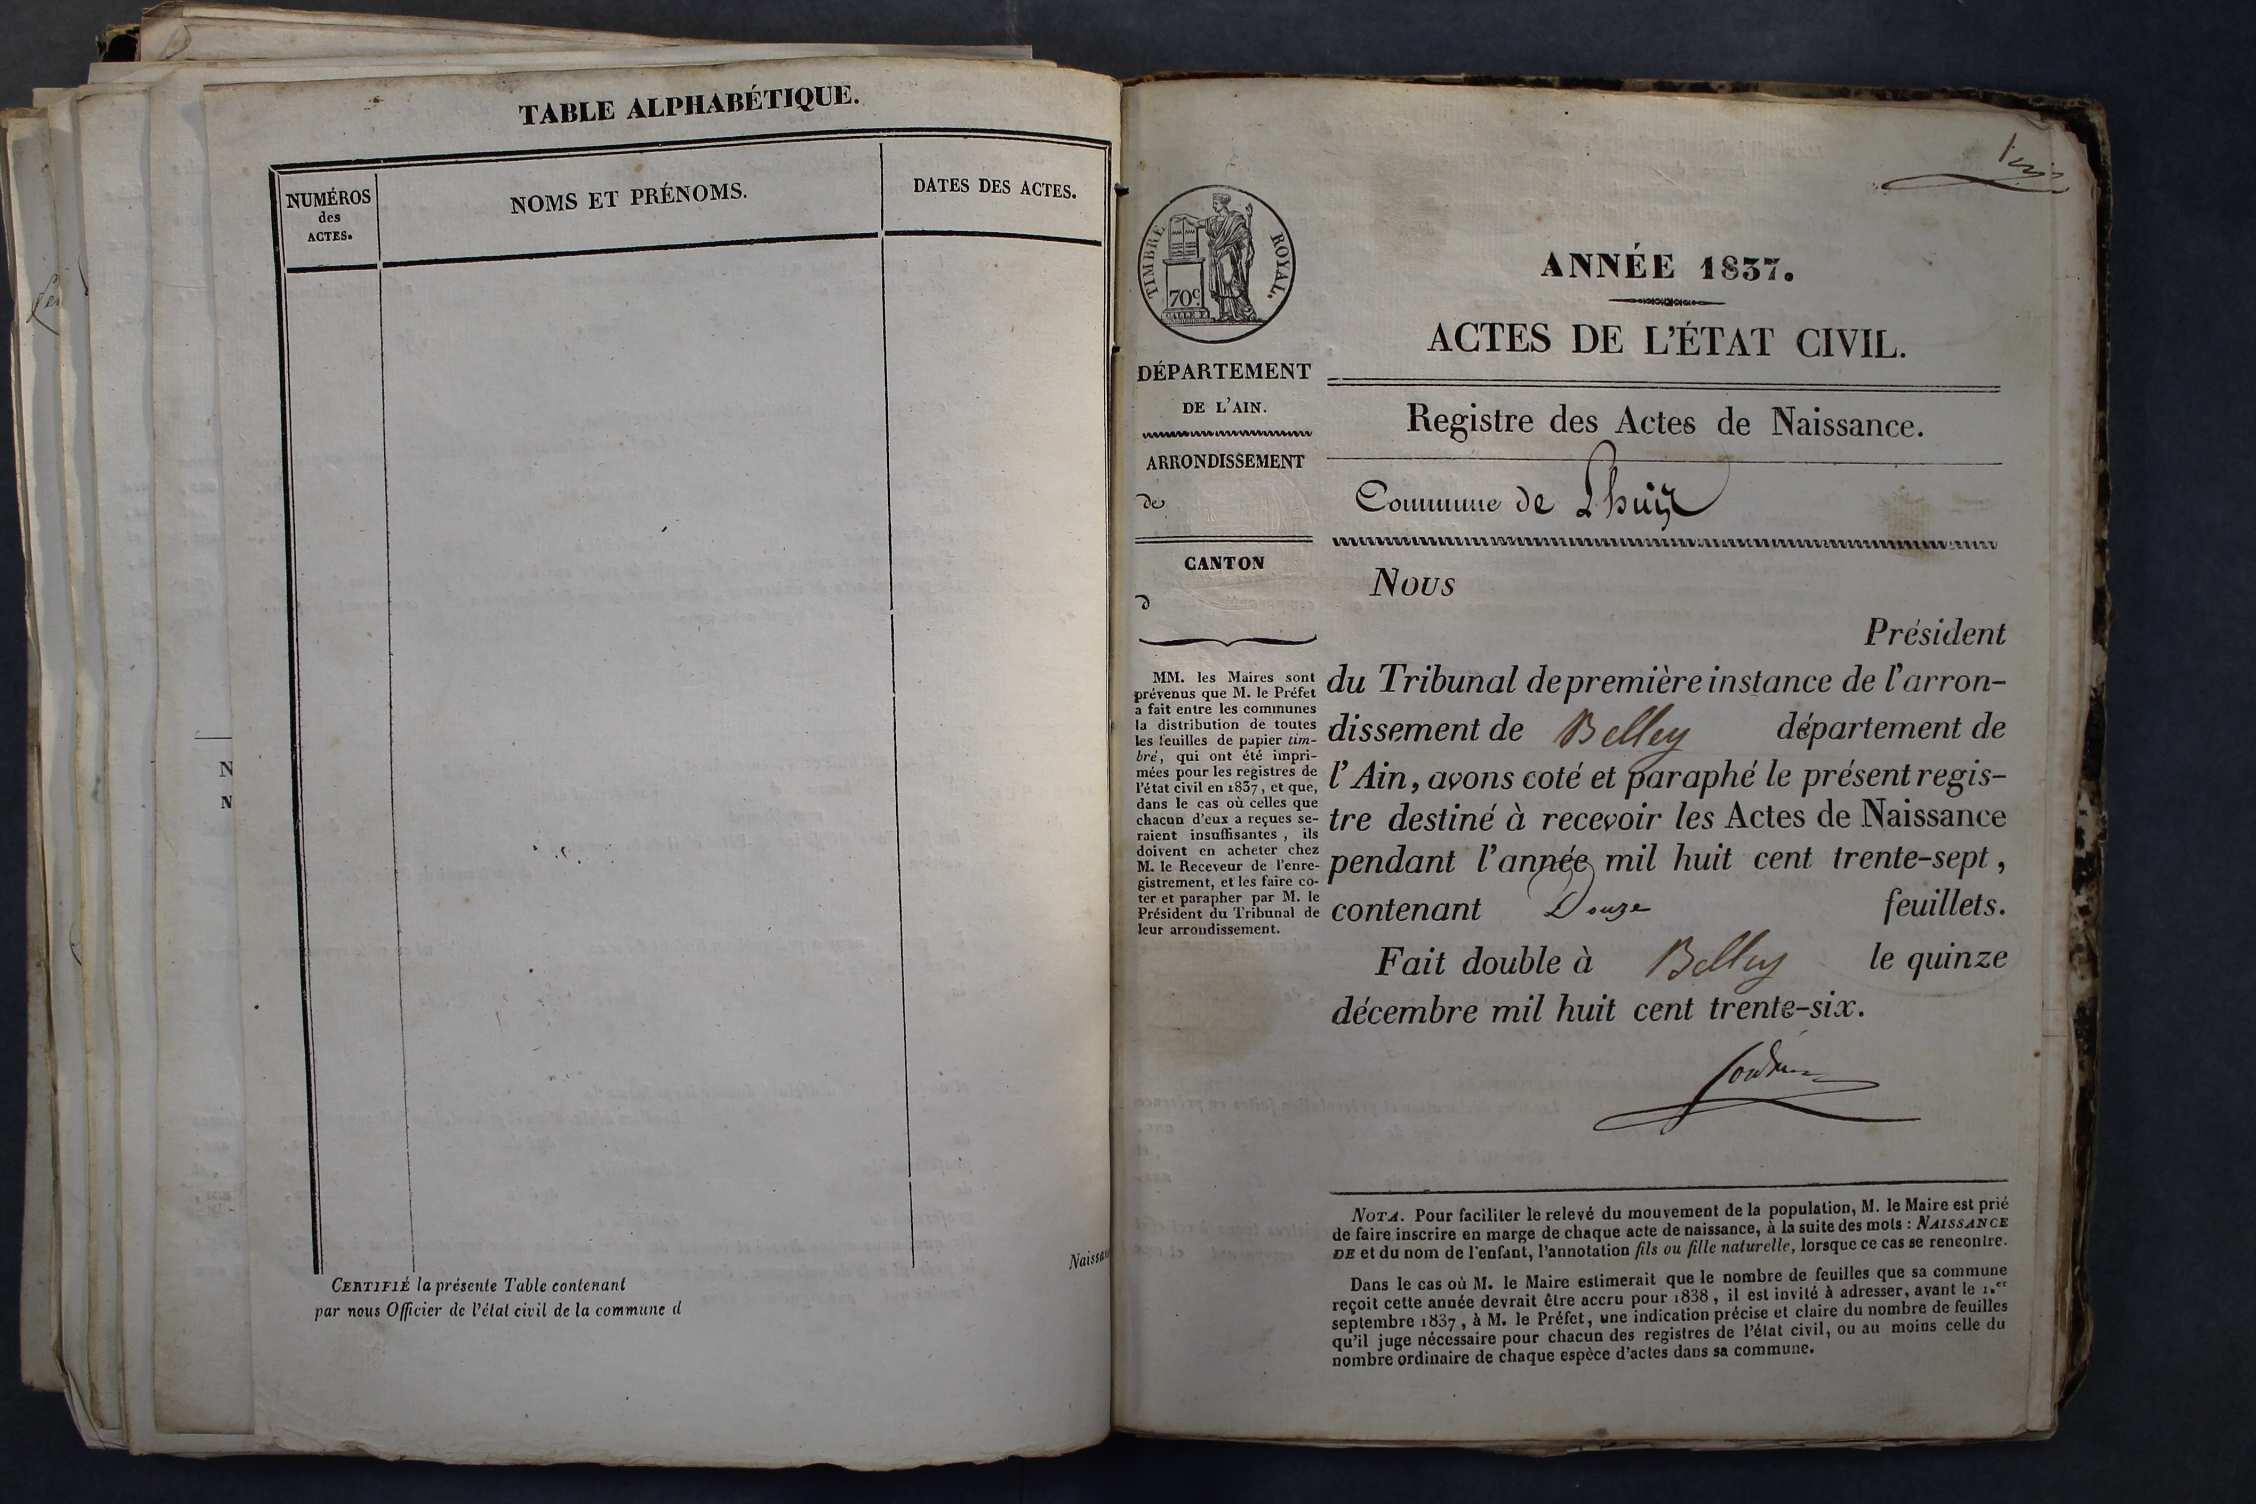 TABLE ALPHABÉTIQUE.
NUMÉROS
des
ACTES.
NOMS ET PRÉNOMS.
DATES DES ACTES.
N
N
CERTIFIÉ la présente Table contenant
par nous Officier de l'état civil de la commune d
Naissan
TIMBRE ROYAL.
70c
DÉPARTEMENT
DE L'AIN.
ARRONDISSEMENT
de
CANTON
d
MM. les Maires sont
prévenus que M. le Préfet
a fait entre les communes
la distribution de toutes
les feuilles de papier tim-
bré, qui ont été impri-
mées pour les registres de
l'état civil en 1837, et que,
dans le cas où celles que
chacun d'eux a reçues se-
raient insuffisantes, ils
doivent en acheter chez
M. le Receveur de l'enre-
gistrement, et les faire co-
ter et parapher par M. le
Président du Tribunal de
leur arrondissement.
ANNÉE 1837.
ACTES DE L'ÉTAT CIVIL.
Registre des Actes de Naissance.
Commune de Lhuiz
Nous
Président
du Tribunal de première instance de l'arron-
dissement de Belley département de
l'Ain, avons coté et paraphé le présent regis-
tre destiné à recevoir les Actes de Naissance
pendant l'année mil huit cent trente-sept,
contenant Douze feuillets.
Fait double à Belley le quinze
décembre mil huit cent trente-six.
NOTA. Pour faciliter le relevé du mouvement de la population, M. le Maire est prié
de faire inscrire en marge de chaque acte de naissance, à la suite des mots : NAISSANCE
DE et du nom de l'enfant, l'annotation fils ou fille naturelle, lorsque ce cas se rencontre.
Dans le cas où M. le Maire estimerait que le nombre de feuilles que sa commune
reçoit cette année devrait être accru pour 1838, il est invité à adresser, avant le 1.er
septembre 1837, à M. le Préfet, une indication précise et claire du nombre de feuilles
qu'il juge nécessaire pour chacun des registres de l'état civil, ou au moins celle du
nombre ordinaire de chaque espèce d'actes dans sa commune.